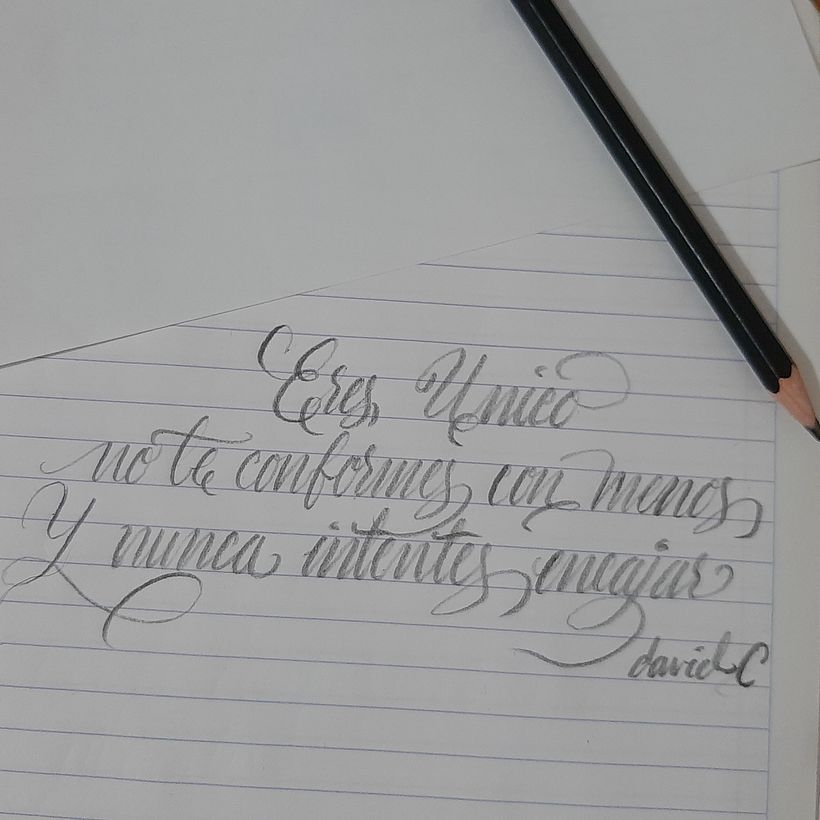 Eres Unico
no te conformes con menos
Y nunca intentes encajar
david C